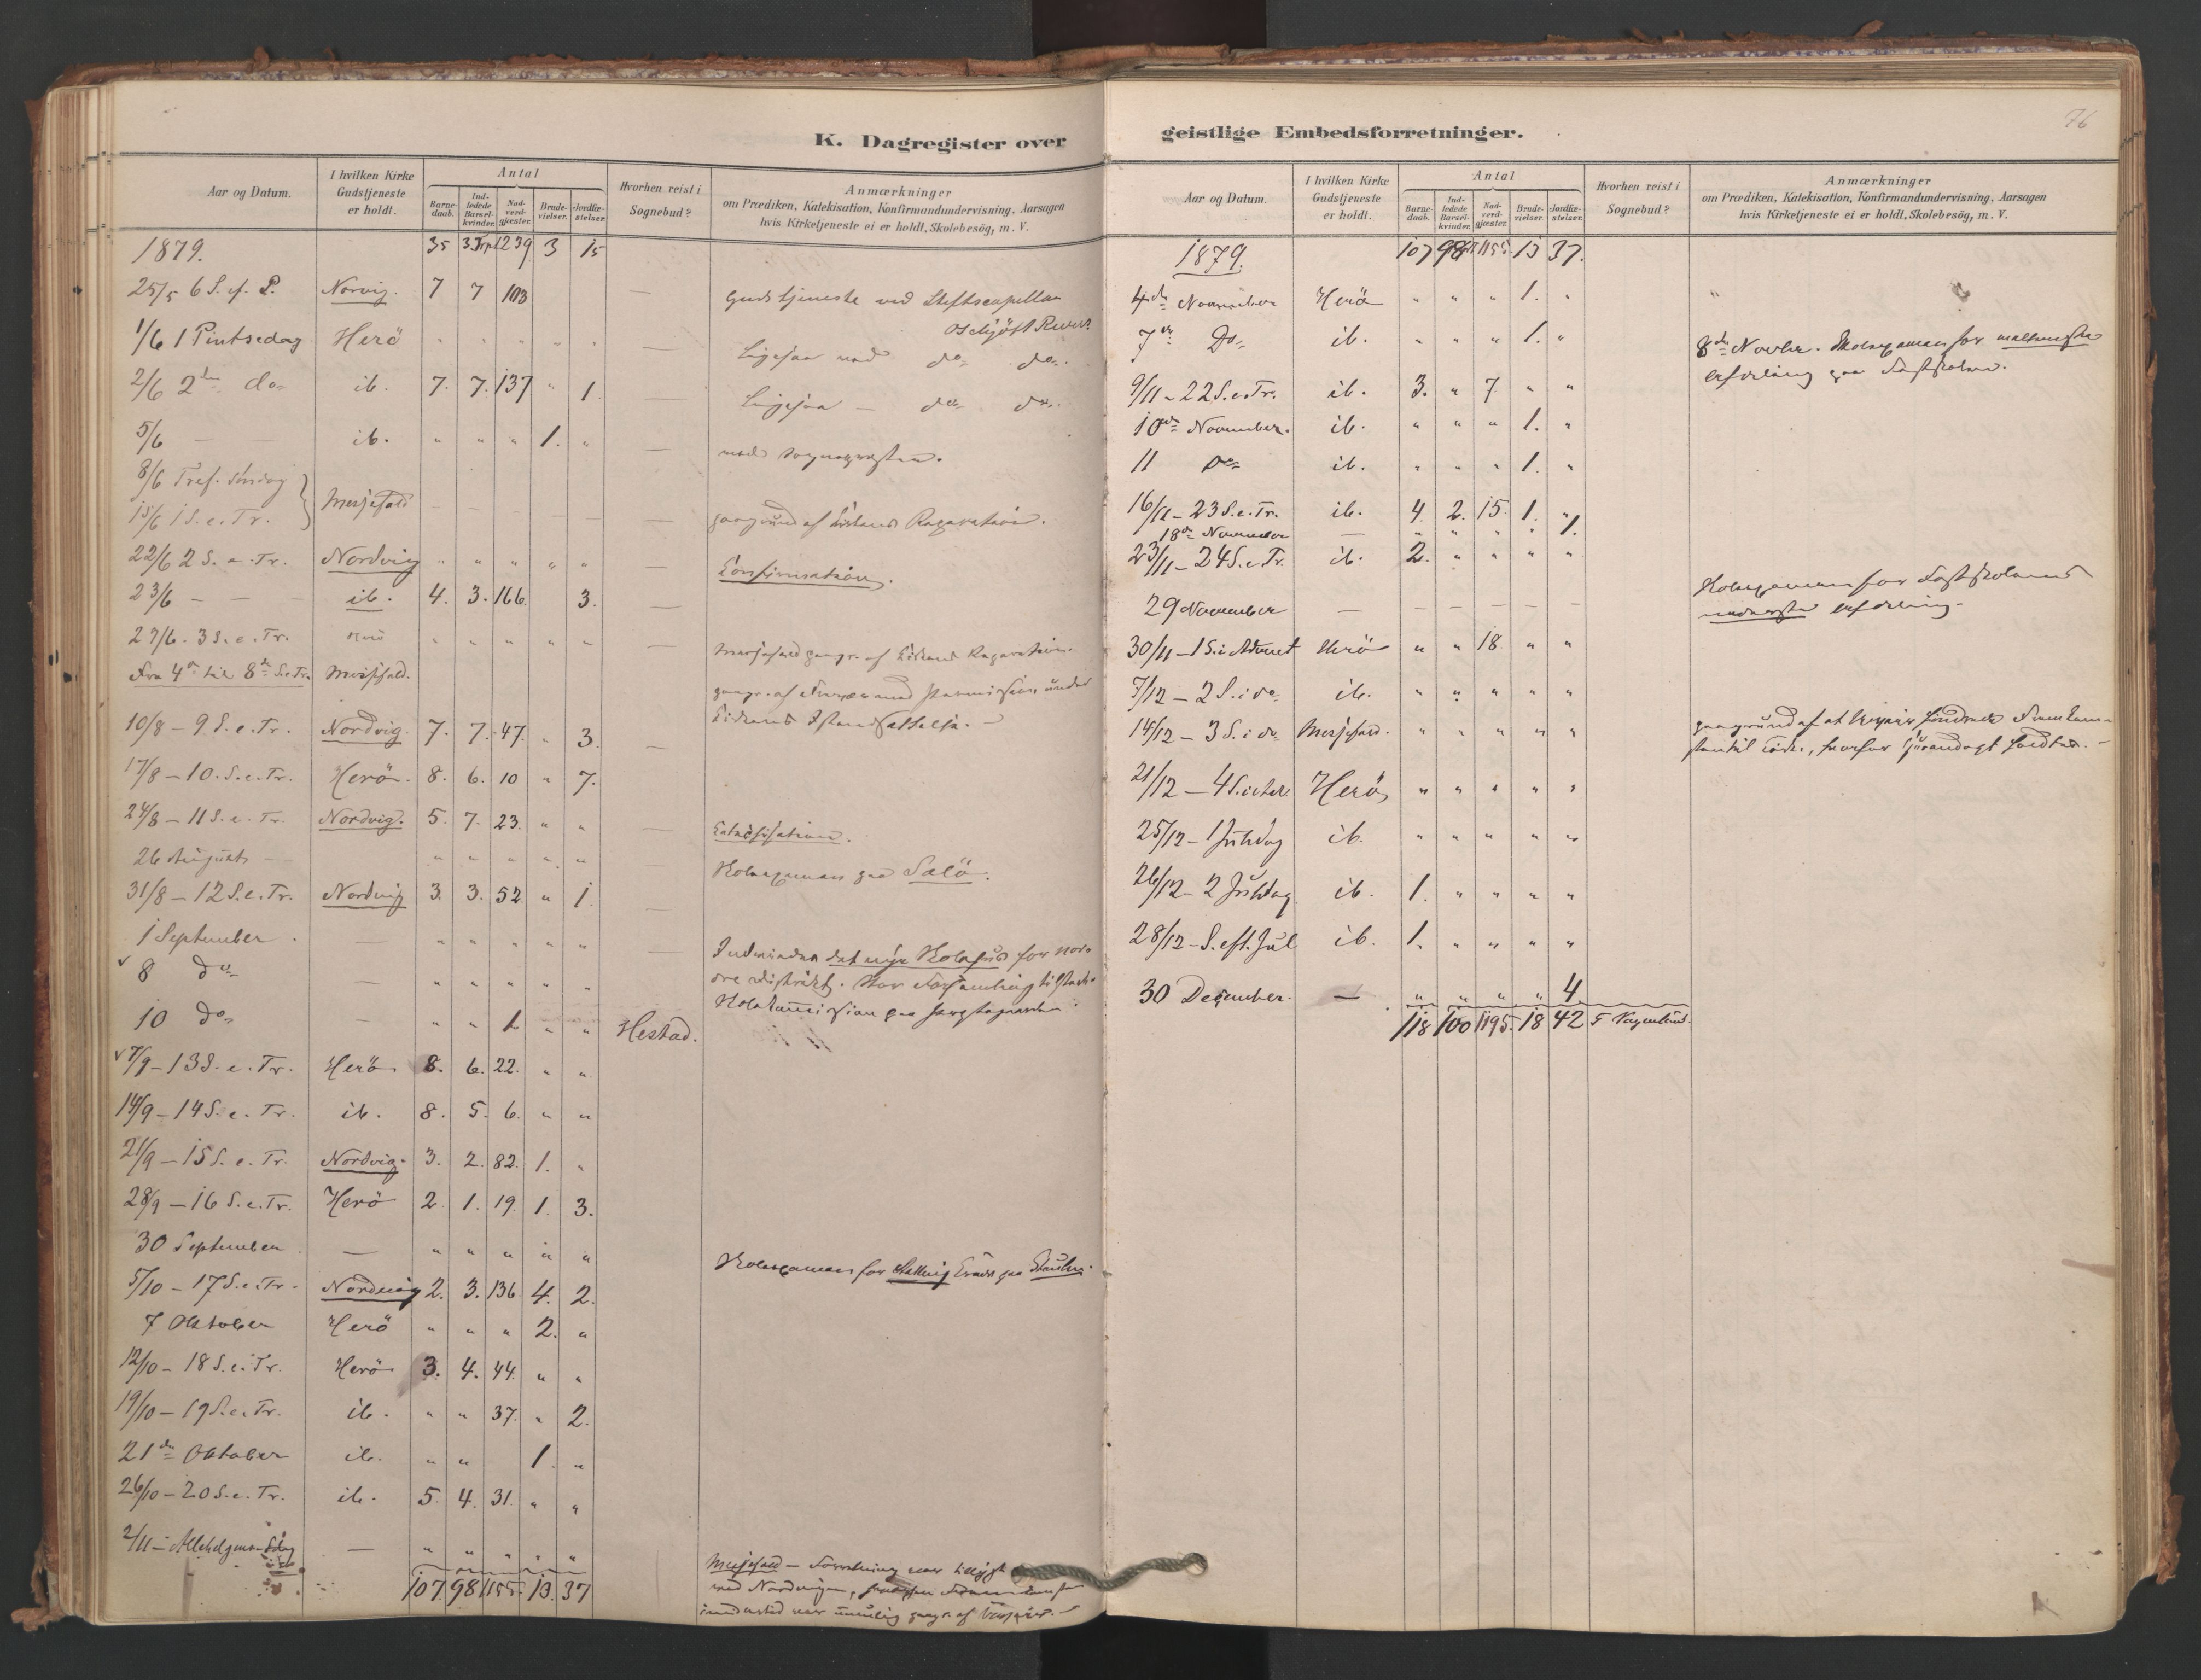 K. Dagregister over
Aar og Datum. | I hvilken Kirke Gudstjeneste er holdt. | Antal | Barnedaab. | Indledede Barselkvinder. | Nadverdgjester. | Brudevielser. | Jordfæstelser. | Hvorhen reist i Sognebud? | Anmærkninger om Prædiken, Katekisation, Konfirmandundervisning, Aarsagen hvis Kirketjeneste ei er holdt, Skolebesög, m. V.
1879. 35 239 3 15
25/5 6 S. ef. P. Norvig. 7 7 103 — Gudstjeneste ved Stiftscapellan
1/6 1 Pintsedag Herö " " " " " — Ligesaa ved do do.
2/6 2den do ib. 7. 7. 137 " 1. — Ligesaa — do do.
5/6 — — ib. " " " 1. " — ved Sognepresten.
8/6 Tref. Söndag
15/6 1 S. e. Tr. } Messefald — — — — — paagrund af Kirkens Reparation.
22/6 2 S. e. Tr. Nordvig " " " " " — Confirmation.
23/6 — — ib. 4. 3. 166. 3. —
29/6. 3 S. e. Tr. Herö " " " " " — Messefald paagr. af Kirkens Reparation.
Fra 4de til 8de S. e. Tr. Messefald.
10/8 – 9 S. e. Tr. Nordvig. 7. 7. 47. " 3. — Kirkens Istandsættelse. —
17/8 – 10. S. e. Tr. Herö. 8. 6. 10 " 7.
24/8 – 11 S. e. Tr. Nordvig. 5. 7. 23. " " — Catechisation.
26 August — " " " " " — Skolexamen paa Salö.
31/8 – 12 S. e. Tr. Nordvig 3. 3. 52. " 1. —
1 September. — " " " " " — Indvielsen det nye Skolehus for nor-
8 do — " " " " " dre District. Stor Forsamling tilstede.
10 do — " " 1 " " Hestad.
7/9 – 13 S. e. Tr. Herö 8. 6. 22. " "
14/9 – 14 S. e. Tr. ib. 8. 5. 6. " "
21/9 – 15 S. e. Tr. Nordvig. 3. 2. 82. 1. "
28/9 – 16 S. e. Tr. Herö 2. 1. 19. 1. 3.
30 September. — " " " " " Skolexamen for
5/10 – 17 S. e. Tr. Nordvig 2. 3. 136. 4. 2.
7 Oktober Herö " " " 2. "
12/10 – 18 S. e. Tr. Herö 3. 4. 44. " "
19/10 – 19 S. e. Tr. ib. " " 37. " 2.
21de Oktober ib. " " 1. "
26/10 – 20 S. e. Tr. ib. 5. 4. 31. " "
2/11 – Allehelgens Sdag — " " " " "
Messefald — Forretning var tillyst
107. 98 1155. 13. 37 ved Nordvigen,
umulig paagr. af Veiret. —
geistlige Embedsforretninger.
76
Aar og Datum. | I hvilken Kirke Gudstjeneste er holdt. | Antal | Barnedaab. | Indledede Barselkvinder. | Nadverdgjester. | Brudevielser. | Jordfæstelser. | Hvorhen reist i Sognebud? | Anmærkninger om Prædiken, Katekisation, Konfirmandundervisning, Aarsagen hvis Kirketjeneste ei er holdt, Skolebesög, m. V.
1879. 107 98 1155 13 37.
4de November Herö " " " 1. "
7de Do ib. " " " 1. " 8de Novbr. Skolexamen for mellemste
9/11 – 22 S. e. Tr. ib. 3. " 7. " " Afdeling paa Fastskolen.
10de November. ib. " " " 1. "
11 Do ib. " " " 1. "
16/11 – 23 S. e. Tr. ib. 4. 2. 15. 1. "
18de November — " " " " 1.
23/11 – 24 S. e. Tr. ib. 2. " " " "
29 November — — — — — — Skolexamen for Fastskolens
nederste Afdeling.
30/11 – 1 S. i Advent Herö " " 18. " "
7/12 – 2 S. i do ib. " " " " "
14/12 – 3 S. i do Messefald. " " " " " paagrund af at Veiret hindrede Fremkom-
21/12 – 4 S. i Adv. Herö " " " " "
25/12 – 1 Juledag ib. " " " " "
26/12 – 2 Juledag ib. 1. " " " "
28/12 – S. eft. Jul ib. 1. " " " "
30 December. — " " " " 4
118 100 1195 18 42 5 Sognebud.